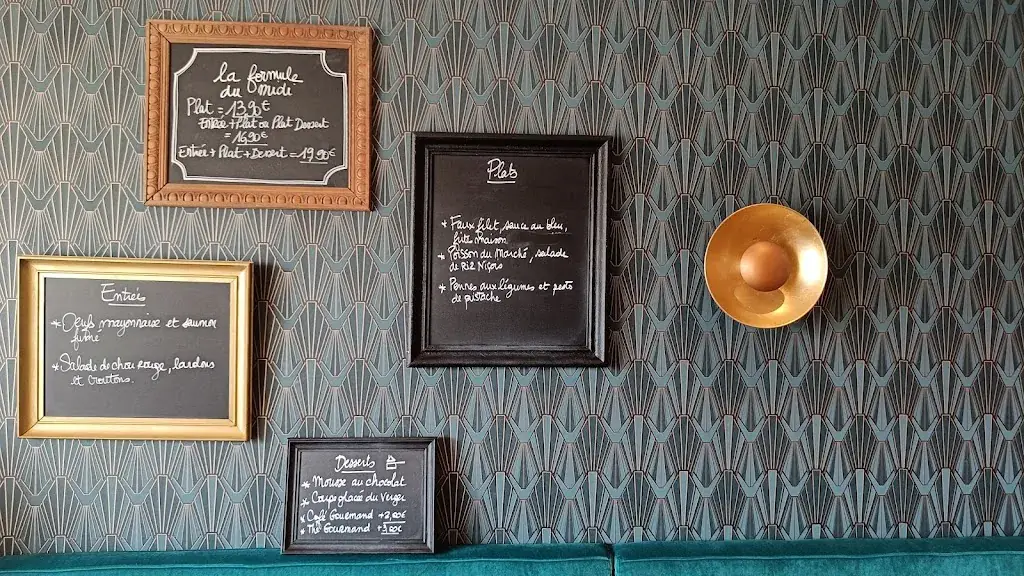 la formule
du midi
Plat = 13,90€
Entrée + Plat ou Plat Dessert
= 16,90€
Entrée + Plat + Dessert = 19,90€
Entrées
* Oeufs mayonnaise et saumon
fumé
* Salade de chou Rouge, lardons
et croutons.
Plats
* Faux filet, sauce au bleu,
frite maison
* Poisson du Marché, salade
de Riz Niçois
* Pennes aux légumes et pesto
de pistache
Desserts
* Mousse au chocolat
* Coupe glacée du Verger
* Café Gourmand +2,80€
* Thé Gourmand +3,80€